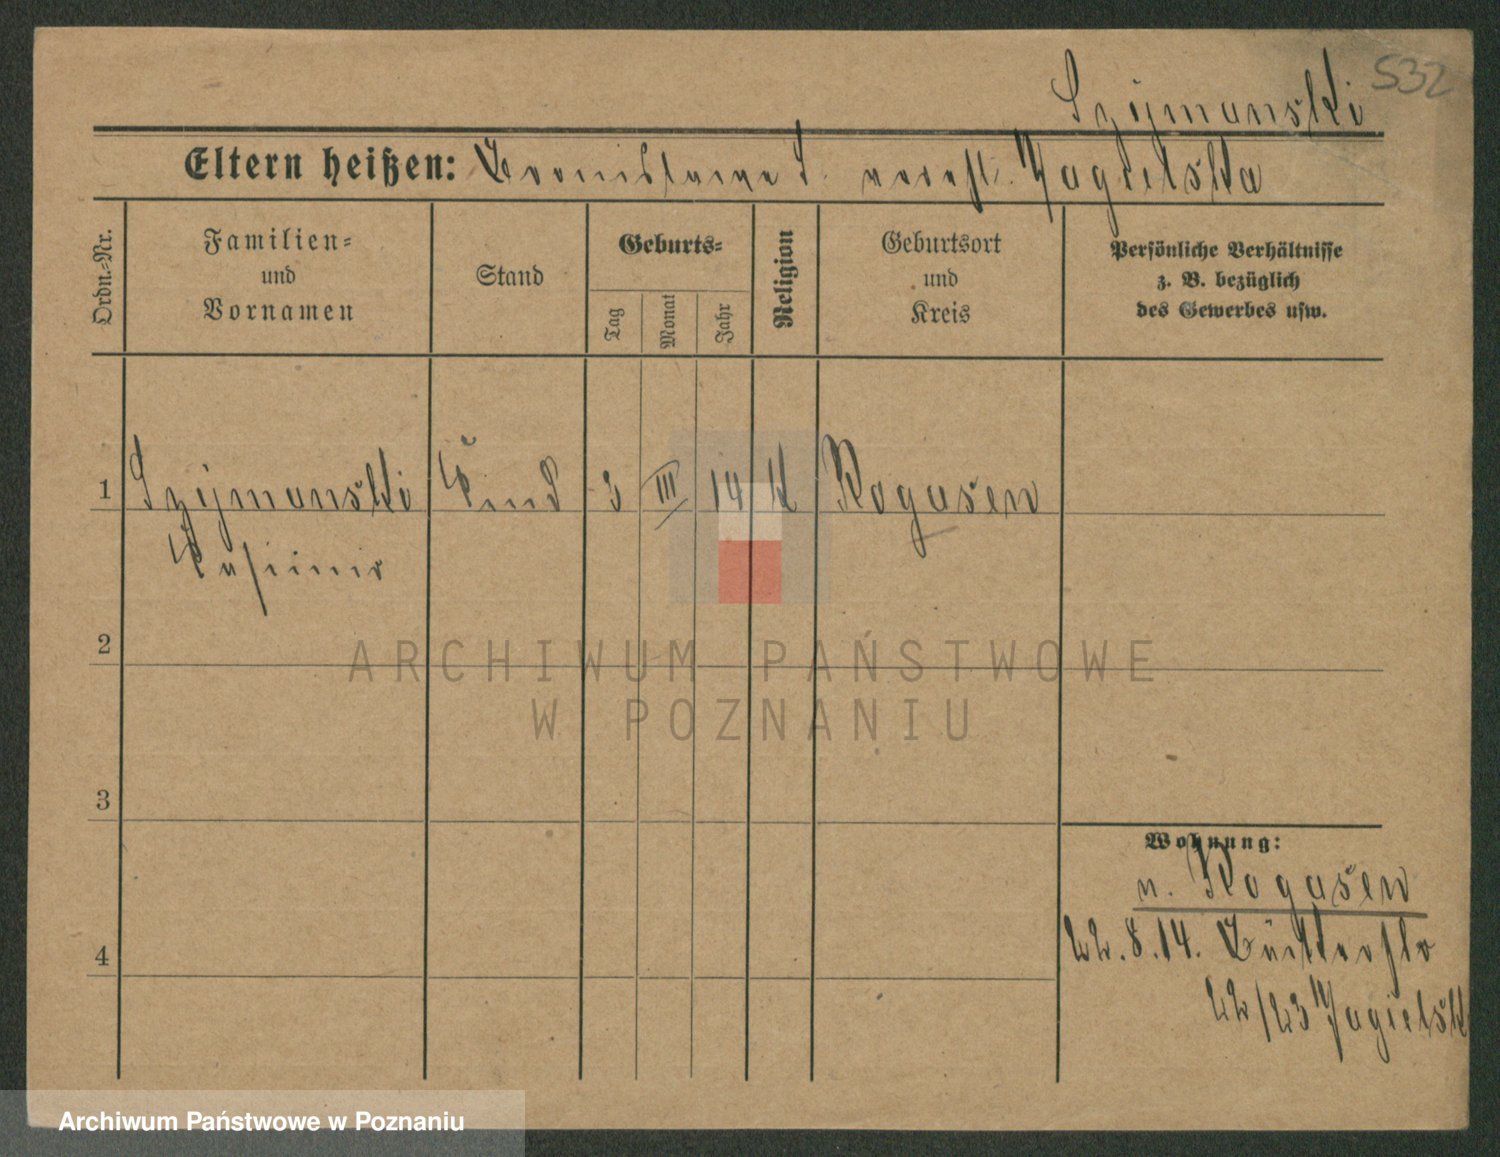 532
Szymanski
Eltern heißen: Bronislawa S. verehl. Jagielska
Ordn.-Nr.
Familien-
und
Vornamen
Stand
Geburts-
Tag
Monat
Jahr
Religion
Geburtsort
und
Kreis
Persönliche Verhältnisse
z. B. bezüglich
des Gewerbes usw.
1 Szymanski Kind 3 III 14 k Rogasen
Kasimir
2
3
4
Wohnung:
n. Rogasen
22.8.14. Büttelstr
22/23 Jagielsk
ARCHIWUM PAŃSTWOWE
W POZNANIU
Archiwum Państwowe w Poznaniu